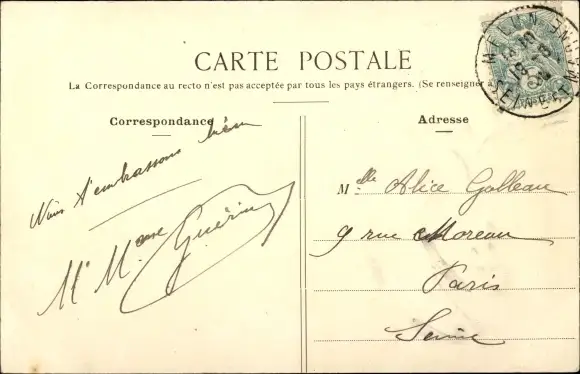 CARTE POSTALE
La Correspondance au recto n'est pas acceptée par tous les pays étrangers. (Se renseigner à
Correspondance
Nous t'embrassons bien
Mr Mme Guérin
Adresse
Melle Alice Galleau
9 rue Moreau
Paris
Seine
MELUN
SEINE-ET-MARNE